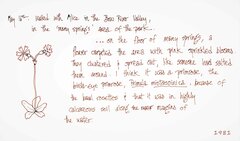 May 15th. walked with Alice in the Bow River Valley,
in the many springs area of the park...
... on the floor of many springs, a
flower carpeted the area with pink sprinkled blooms
they clustered & spread out, like someone had tossed
them around. I think it was a primrose, the
birds-eye primrose, Primula mistassinica, because of
the basal rosettes & that it was in highly
calcareous soil along the water margins of
the water
1982